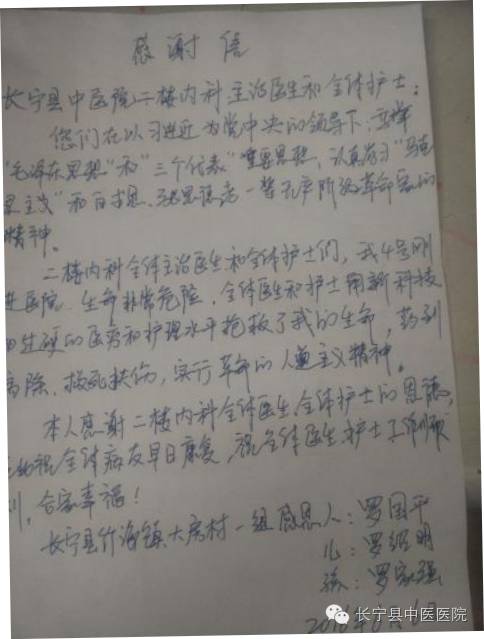 感谢信
长宁县中医院二楼内科主治医生和全体护士：
您们在以习进近为党中央的领导下，高举
"毛泽东思想"和"三个代表"重要思想，认真学习"马克
思主义"和白求恩、马思德老一辈无产阶级革命家的
精神。
二楼内科全体主治医生和全体护士们，我4号刚
进医院，生命非常危险，全体医生和护士用新科技
过硬的医疗和护理水平抢救了我的生命，药到
病除、救死扶伤，实行革命的人道主义精神。
本人感谢二楼内科全体医生全体护士的恩德，
祝全体病友早日康复，祝全体医生护士工作顺
利，合家幸福！
长宁县竹海镇大房村一组感恩人：罗国平
儿：罗绍明
孙：罗家强
长宁县中医医院